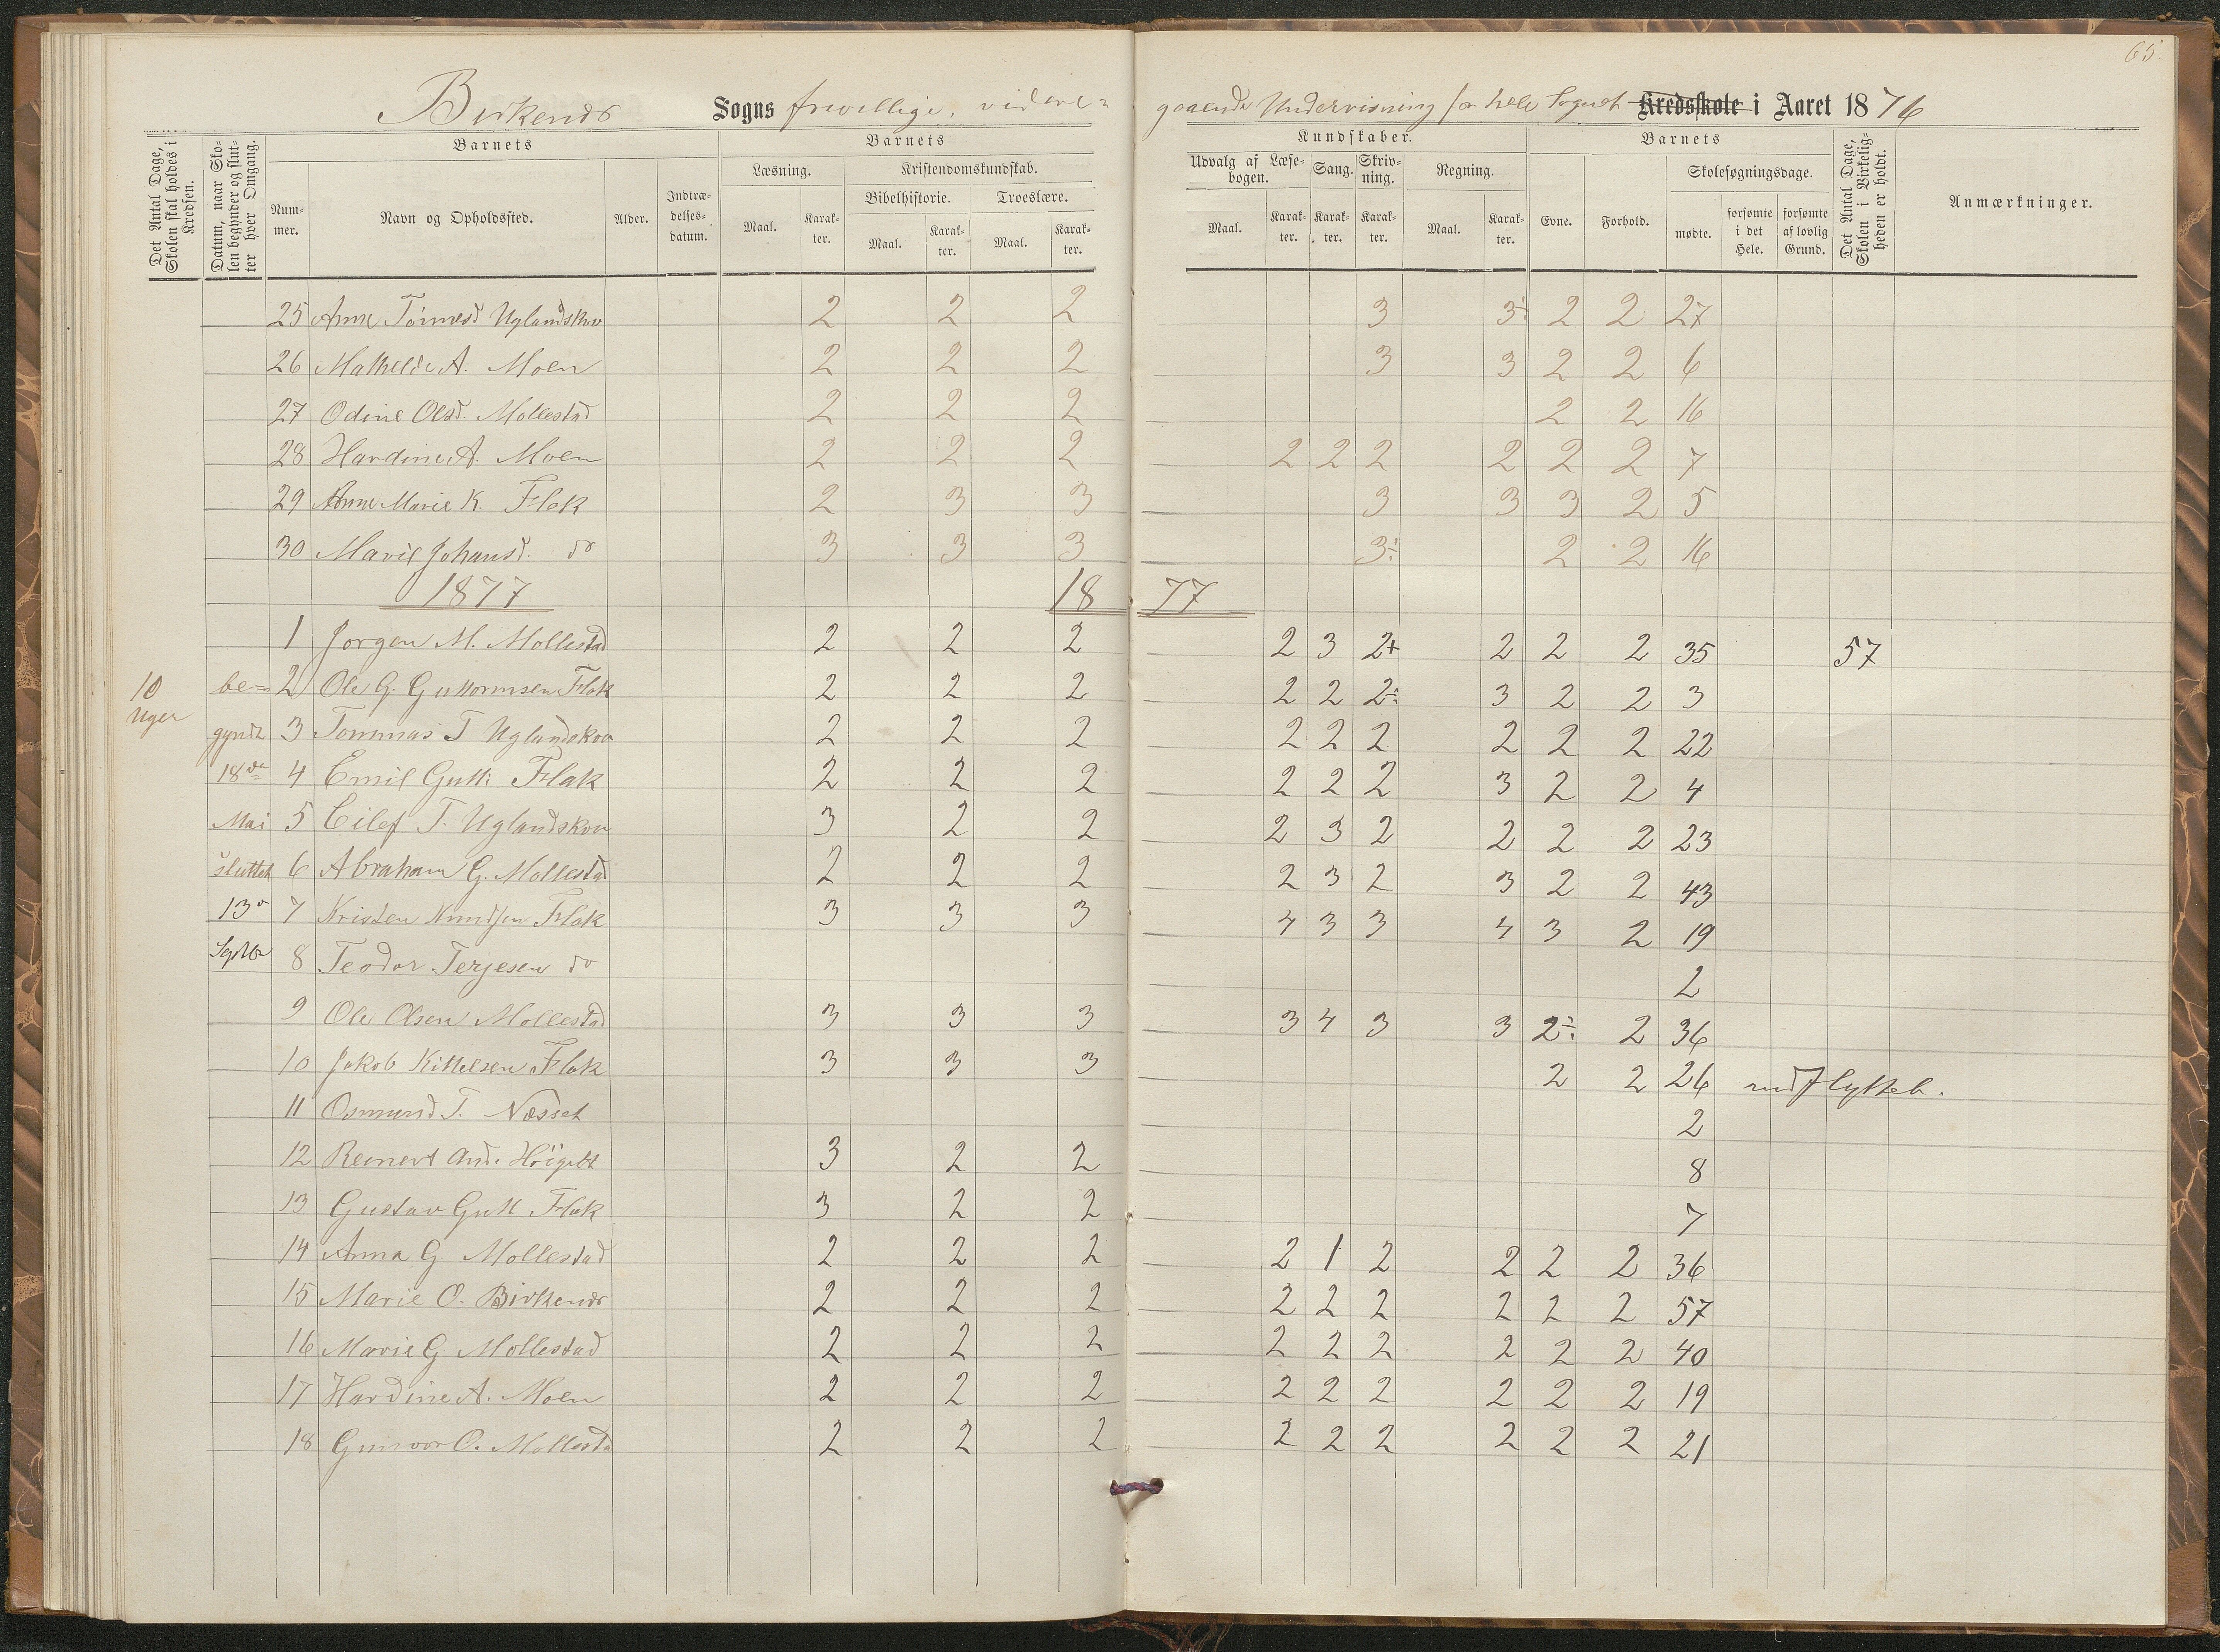 65
Birkenes Sogns frivillige, videre- gaaende Undervisning for hele Sognet Kredsskole i Aaret 1876
Det Antal Dage, Skolen skal holdes i Kredsen.
Datum, naar Skolen begynder og slutter hver Omgang.
Barnets
Nummer.
Navn og Opholdssted.
Alder.
Indtrædelsesdatum.
Barnets
Læsning.
Maal.
Karakter.
Kristendomskundskab.
Bibelhistorie.
Maal.
Karakter.
Troeslære.
Maal.
Karakter.
Kundskaber.
Udvalg af Læsebogen.
Maal.
Karakter.
Sang.
Karakter.
Skrivning.
Karakter.
Regning.
Maal.
Karakter.
Barnets
Evne.
Forhold.
Skolesøgningsdage.
mødte.
forsømte i det Hele.
forsømte af lovlig Grund.
Det Antal Dage, Skolen i Virkeligheden er holdt.
Anmærkninger.
25 Anne Tórmesd Uglandskov 2 2 2 3 3÷ 2 2 27
26 Mathelde A. Moen 2 2 2 3 3 2 2 6
27 Odine Olsd. Mollestad 2 2 2 2 2 16
28 Hardine A. Moen 2 2 2 2 2 2 2 2 2 7
29 Anne Marie K. Flak 2 3 3 3 3 3 2 5
30 Marie Johansd. do 3 3 3 3÷ 2 2 16
1877 1877
1 Jorgen M. Mollestad 2 2 2 2 3 2+ 2 2 2 35 57
10 Uger be= 2 Ole G. Guttormsen Flak 2 2 2 2 2 2÷ 3 2 2 3
gyndt 3 Tommas T Uglandskov 2 2 2 2 2 2 2 2 2 22
18de 4 Emil Gutt: Flak 2 2 2 2 2 2 3 2 2 4
Mai 5 Eilef T. Uglandskov 3 2 2 2 3 2 2 2 2 23
sluttet 6 Abraham G. Mollestad 2 2 2 2 3 2 3 2 2 43
13de 7 Kristen Knudsen Flak 3 3 3 4 3 3 4 3 2 19
Septbr 8 Teodor Terjesen do 2
9 Ole Olsen Mollestad 3 3 3 3 4 3 3 2÷ 2 36
10 Jakob Kittelsen Flak 3 3 3 2 2 26 udflyttet.
11 Osmund T. Næsset 2
12 Reinert And. 3 2 2 8
13 Gustav Gutt Flak 3 2 2 7
14 Anna G Mollestad 2 2 2 2 1 2 2 2 2 36
15 Marie O. Birkenes 2 2 2 2 2 2 2 2 2 57
16 Marie G. Mollestad 2 2 2 2 2 2 2 2 2 40
17 Hardine A. Moen 2 2 2 2 2 2 2 2 2 19
18 Gunvor O. Mollesta 2 2 2 2 2 2 2 2 2 21